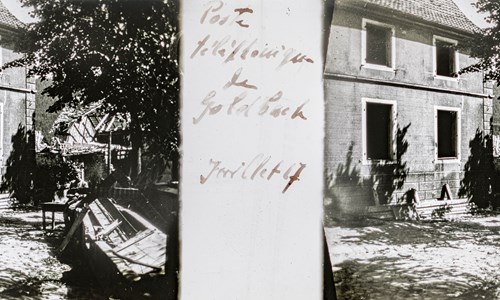 Poste
téléphonique
de
Goldbach
Juillet 17